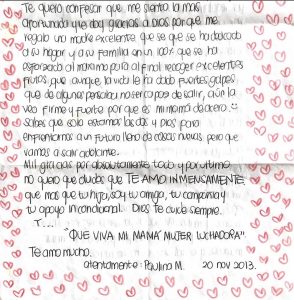 Te quiero confesar que me siento la más
afortunada y le doy gracias a Dios por que me
regalo una madre excelente que se que se ha dedicado
a su hogar y a su familia en un 100% que se ha
esforzado al máximo para al final recoger excelentes
frutos que aunque la vida le ha dado fuertes golpes
que de algunos pensaba no ser capaz de salir, aún la
veo firme y fuerte por que es mi mamá de acero
sabes que solo estamos las dos y Dios para
enfrentarnos a un futuro lleno de cosas nuevas pero que
vamos a salir adelante.
Mil gracias por absolutamente todo y por último
no quiero que dudes que TE AMO INMENSAMENTE,
que mas que tu hija, soy tu amiga, tu compañia y
tu apoyo incondicional. Dios te cuide siempre.
"QUE VIVA MI MAMÁ MUJER LUCHADORA".
Te amo mucho.
atentamente: Paulina M. 20 nov 2013.